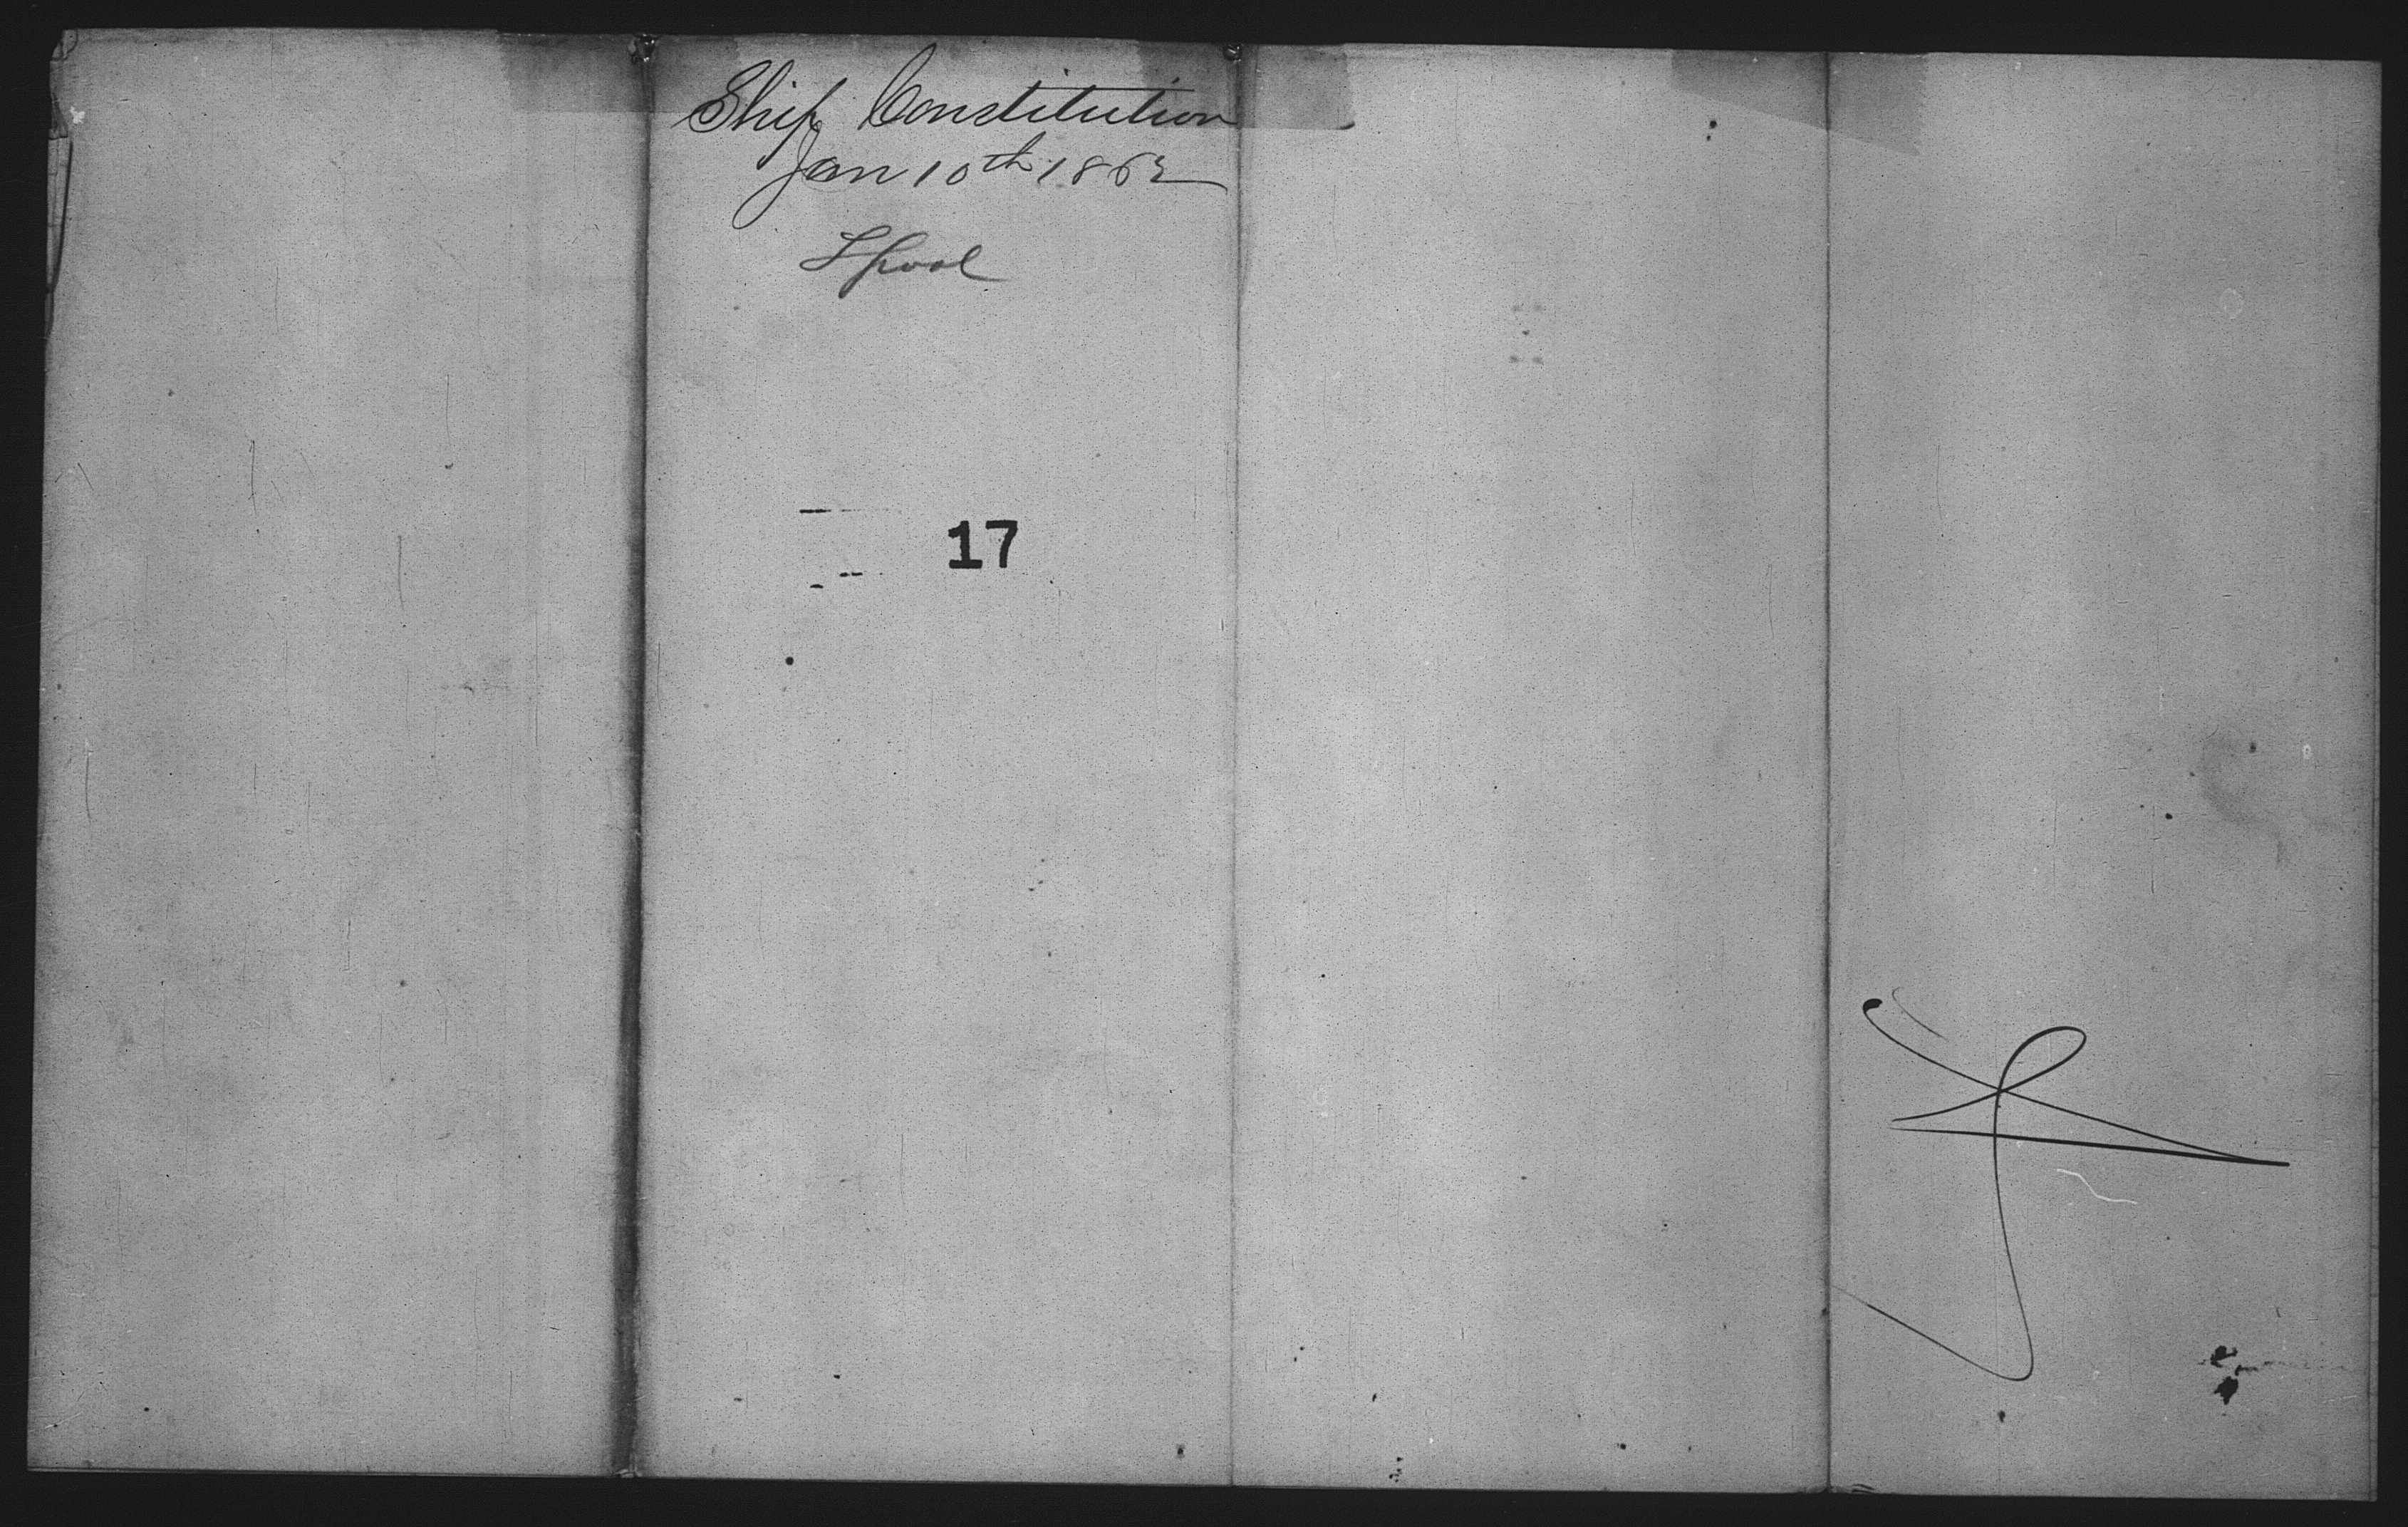 Ship Constitution
Jan 10th 1862
Lpool
17